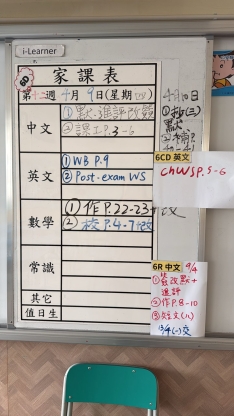 i-Learner
家課表
第十二週4月9日(星期四)
中文
①默、進評改簽
②課工P.3-6
英文
①WB P.9
②Post-exam WS
數學
①作P.22-23+改
②校P.4-7+改
常識
其它
值日生
4月10日
①抄(三)
默
6CD 英文
ChWS P.5-6
6R 中文 9/4
①簽改默+
進評
②作P.8-10
③短文(八)
13/4(一)交